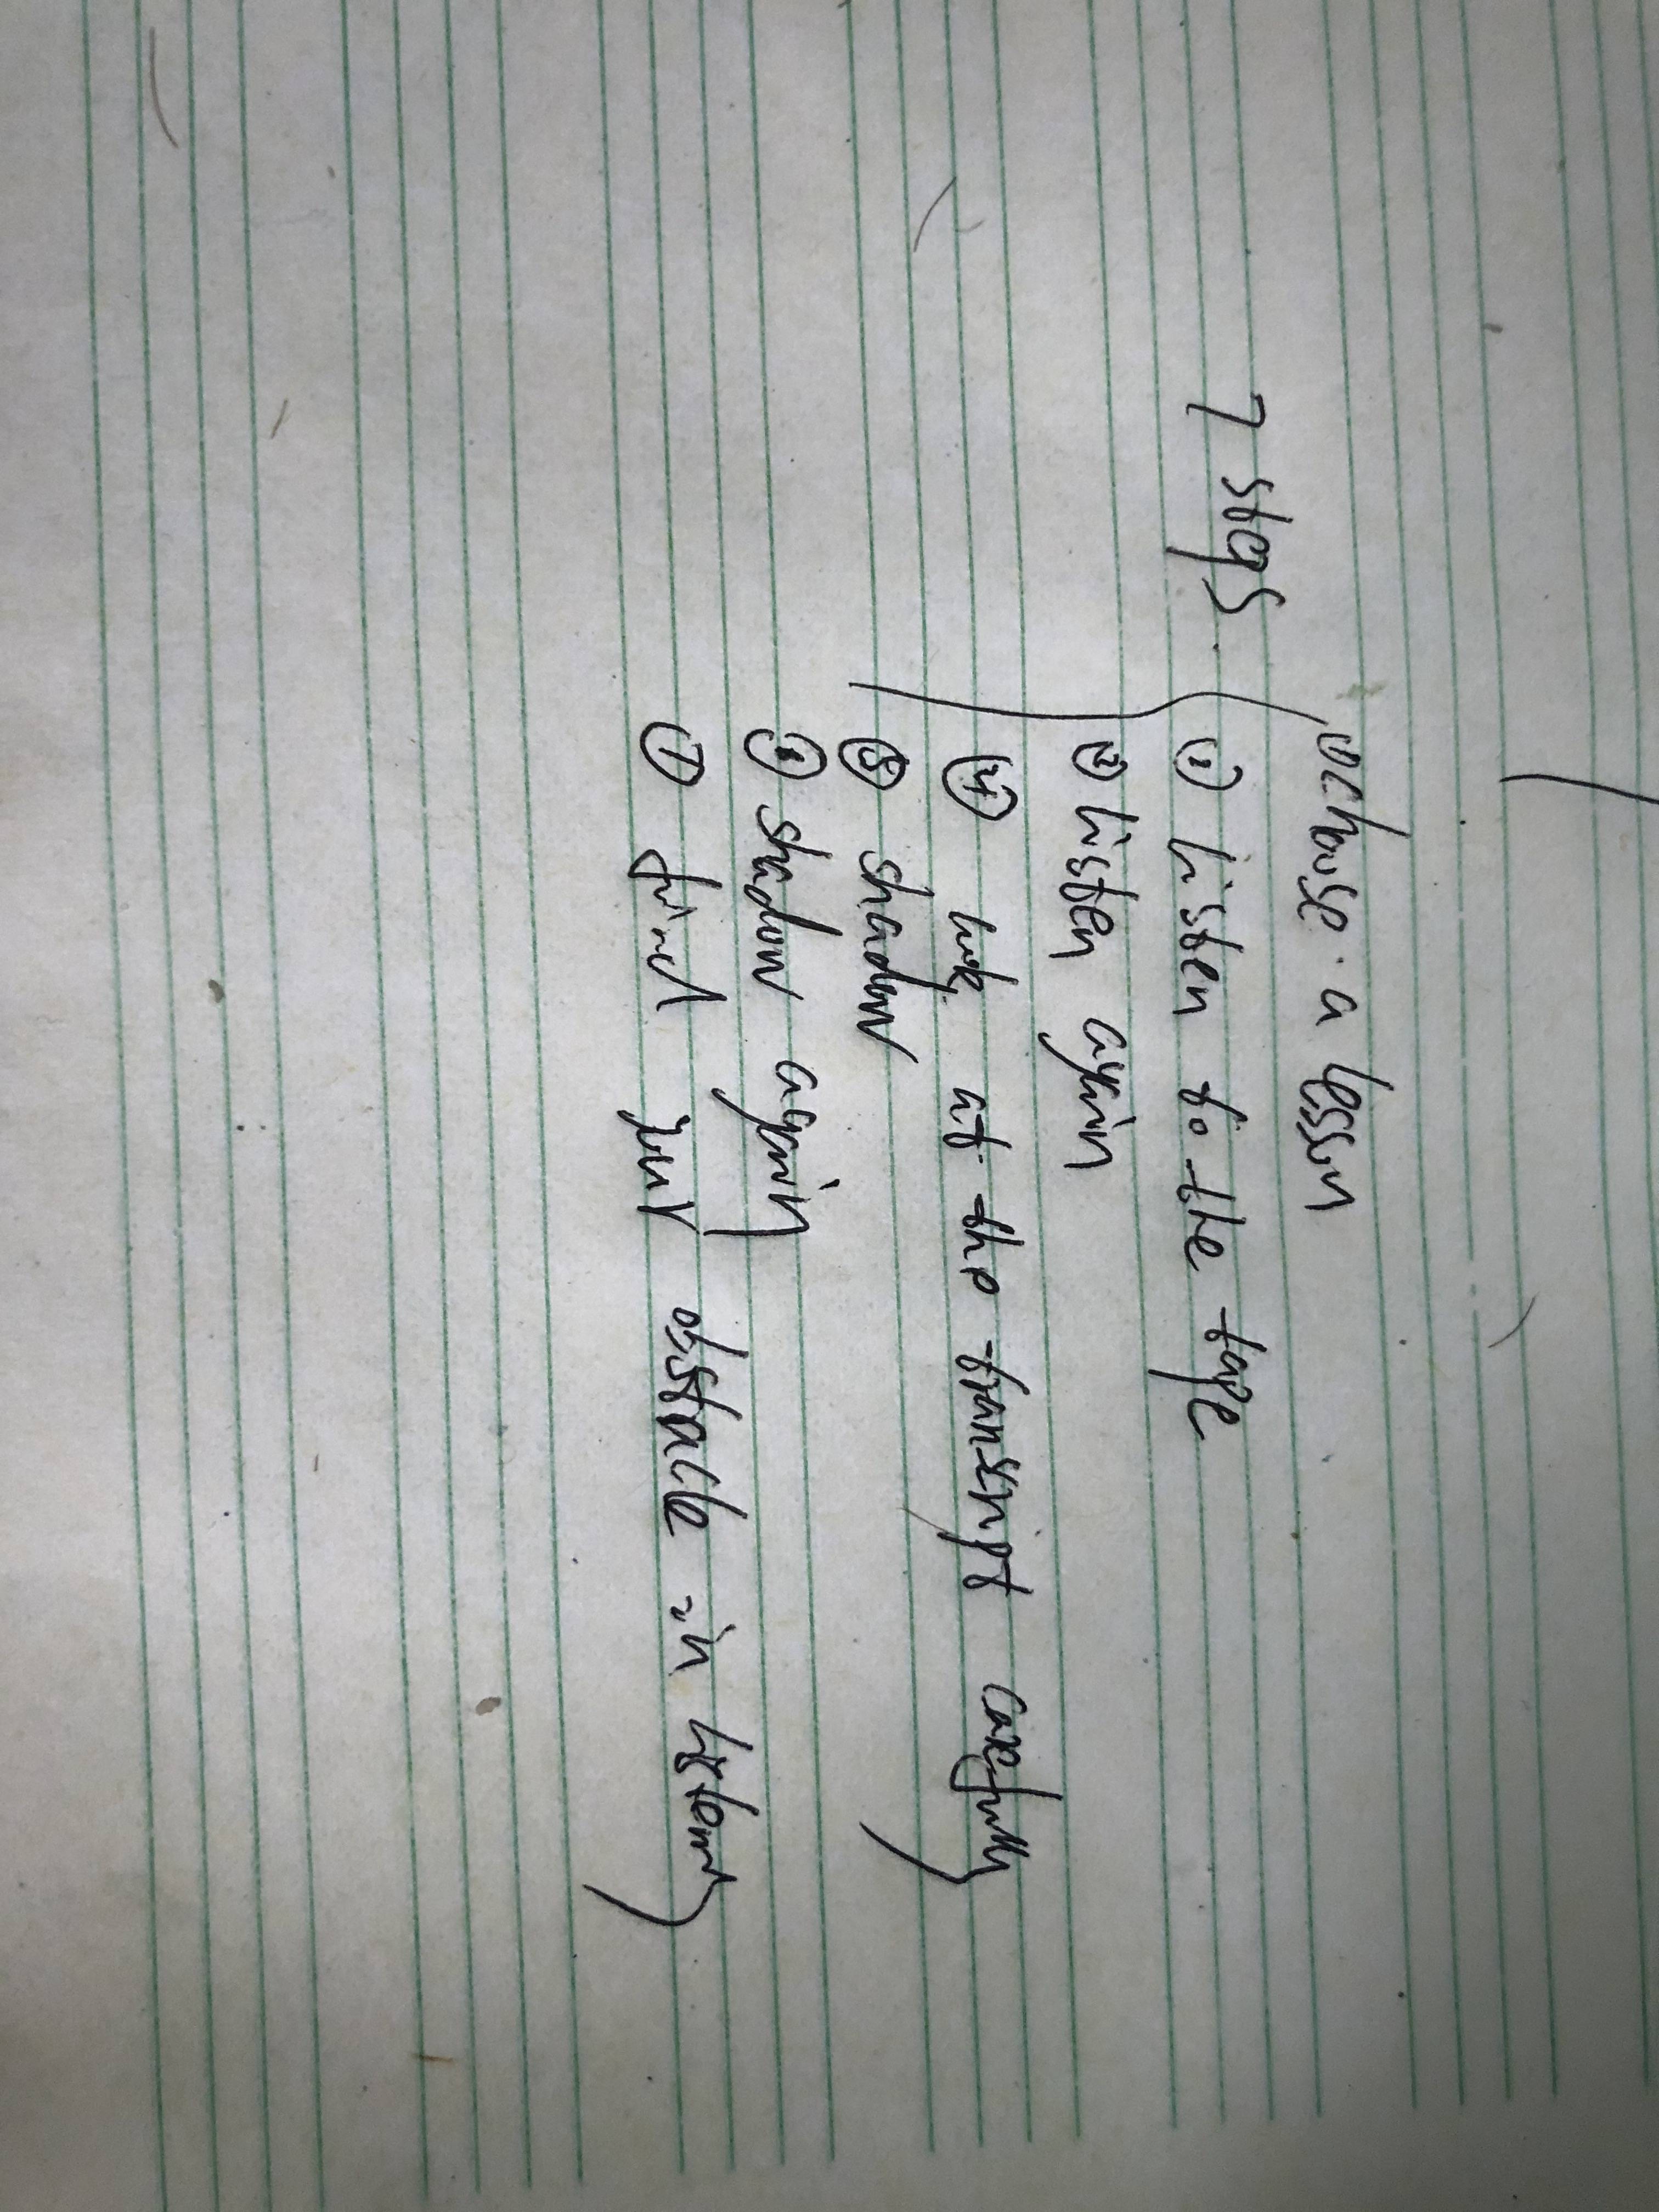 7 steps
chouse a lesson
① listen to the tape
② listen again
④ look at the transcript carefully
⑤ shadow
⑥ shadow again
⑦ find your obstacle in listening